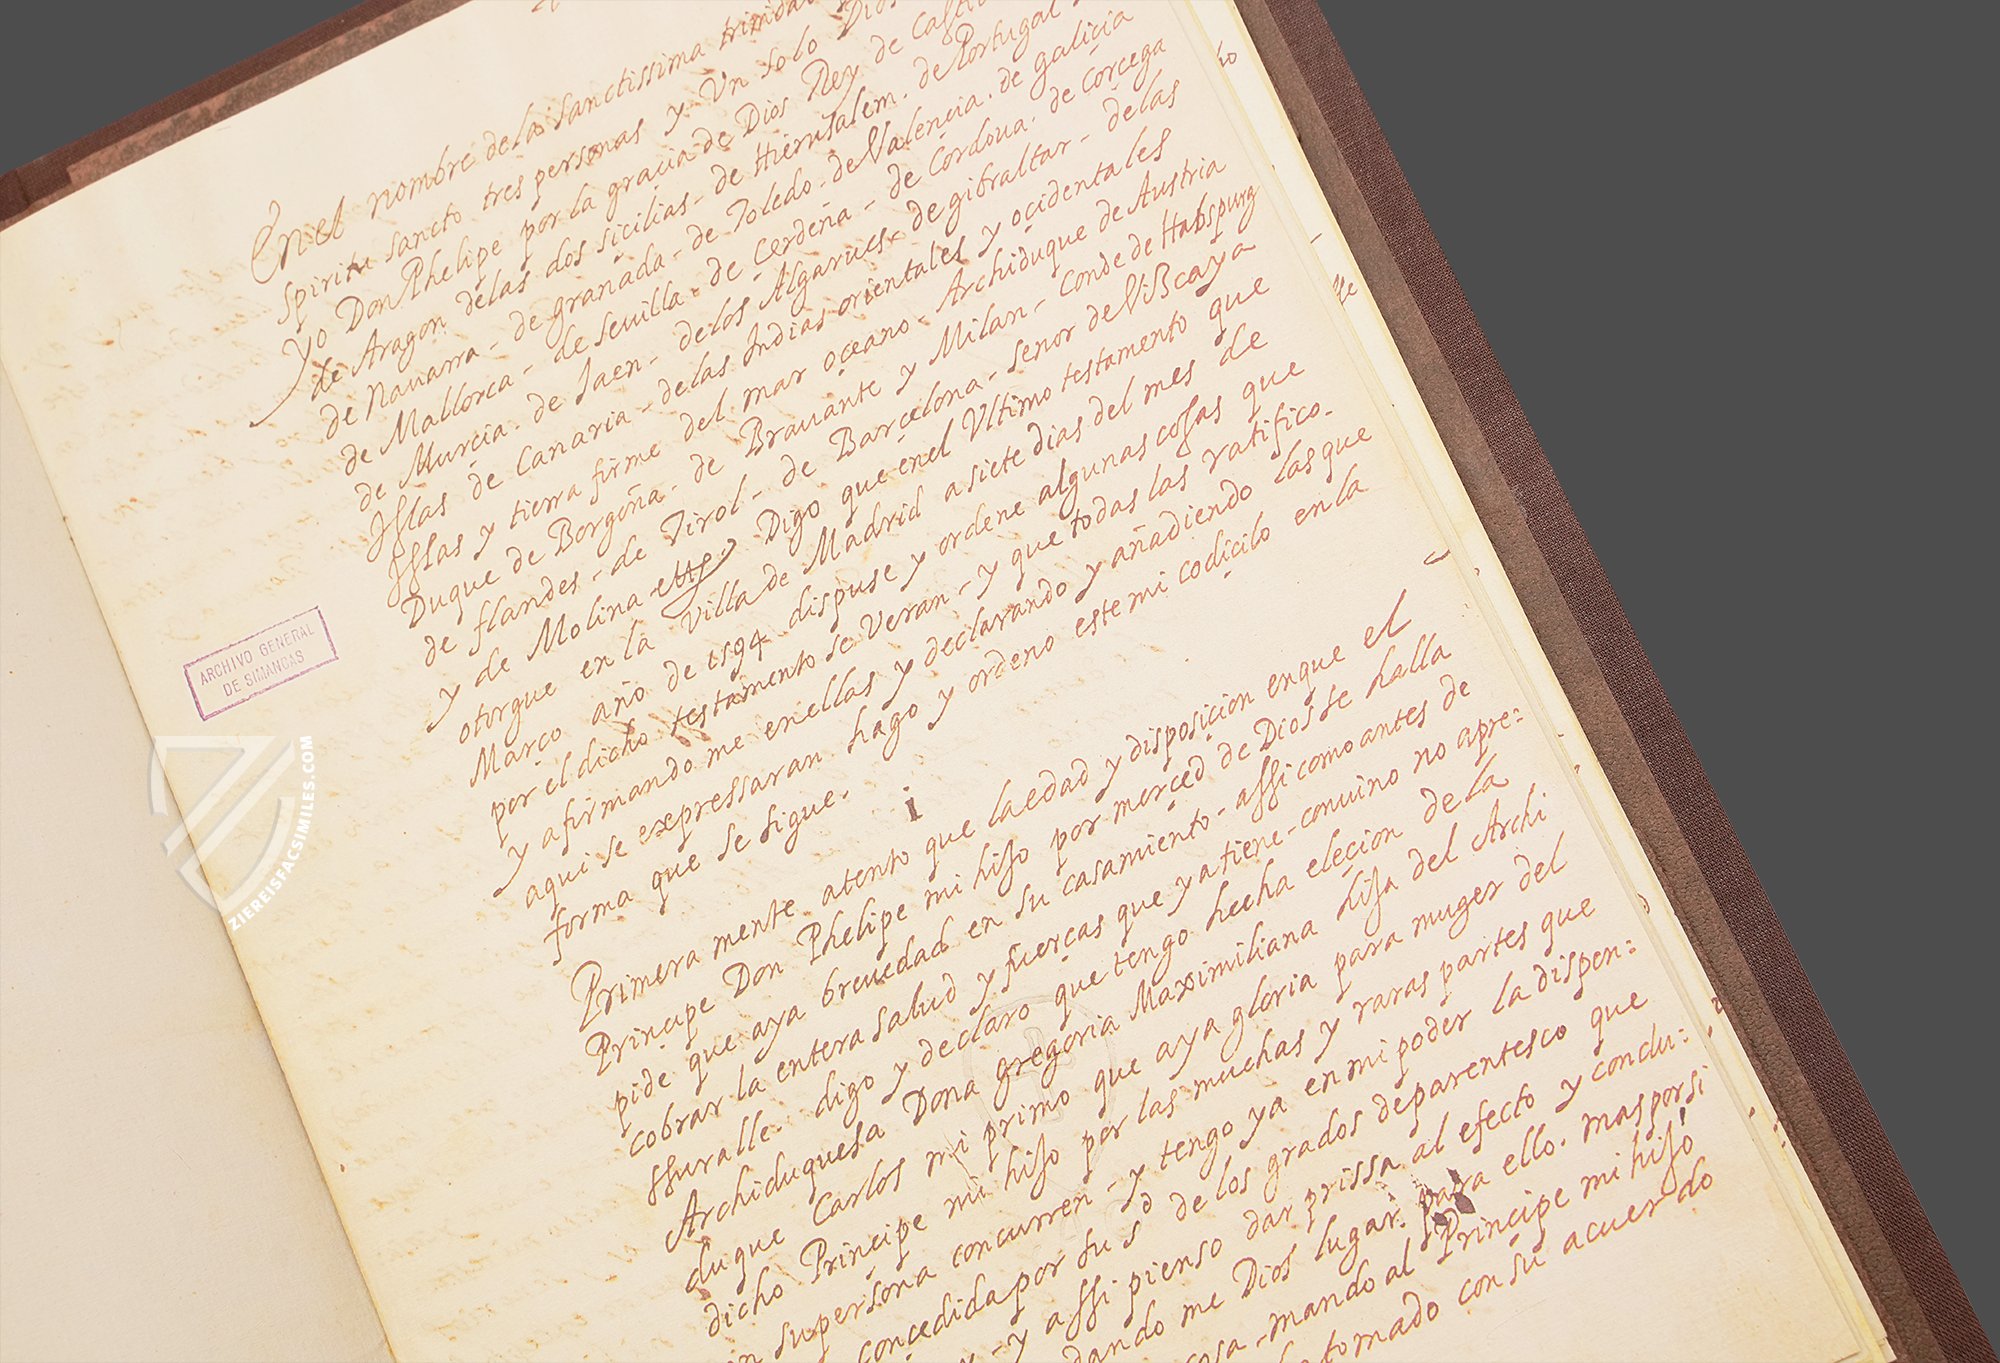 En el nombre de la Sanctissima trinidad
Spiritu sancto tres personas y Un solo Dios
yo Don Phelipe por la gracia de Dios Rey de Castil
de Aragon delas dos sicilias - de Hierusalem. de Portugal
de Nauarra - de granada - de Toledo - de Valencia. de galicia
de Mallorca - de Seuilla - de Cerdeña - de Cordoua. de corcega
de Murcia - de Jaen - delos Algarues - de gibraltar - delas
Jslas de Canaria - delas Indias orientales y ocidentales
Jslas y tierra firme del mar oceano - Archiduque de Austria
Duque de Borgoña - de Brauante y Milan - Conde de Habspurg
de flandes - de Tirol - de Barçelona - señor de Vizcaya
y de Molina - Digo que enel Vltimo testamento que
otorgue en la Villa de Madrid a siete dias del mes de
Março año de 1594 dispuse y ordene algunas cosas que
por el dicho testamento se veran - y que todas las ratifico -
y afirmando me enellas y declarando y añadiendo las que
aqui se expressaran hago y ordeno este mi codicilo en la
forma que se sigue.
i
Primera mente atento que la edad y disposicion enque el
Prinçipe Don Phelipe mi hijo por merçed de Dios se halla
pide que aya breuedad en su casamiento - assi como antes de
cobrar la entera salud y fuerças que ya tiene - conuino no apre:
ssuralle. digo y declaro que tengo hecha eleçion de la
Archiduquesa Dona gregoria Maximiliana hija del Archi
duque Carlos mi primo que aya gloria para muger del
dicho Prinçipe mi hijo por las muchas y raras partes que
en su persona concurren - y tengo ya en mi poder la dispen:
conçedida por su Sd de los grados de parentesco que
- y assi pienso dar prissa al efecto y conclu:
dando me Dios lugar para ello. mas por si
cosa - mando al Prinçipe mi hijo
tomado con su acuerdo
ARCHIVO GENERAL
DE SIMANCAS
ZIEREISFACSIMILES.COM